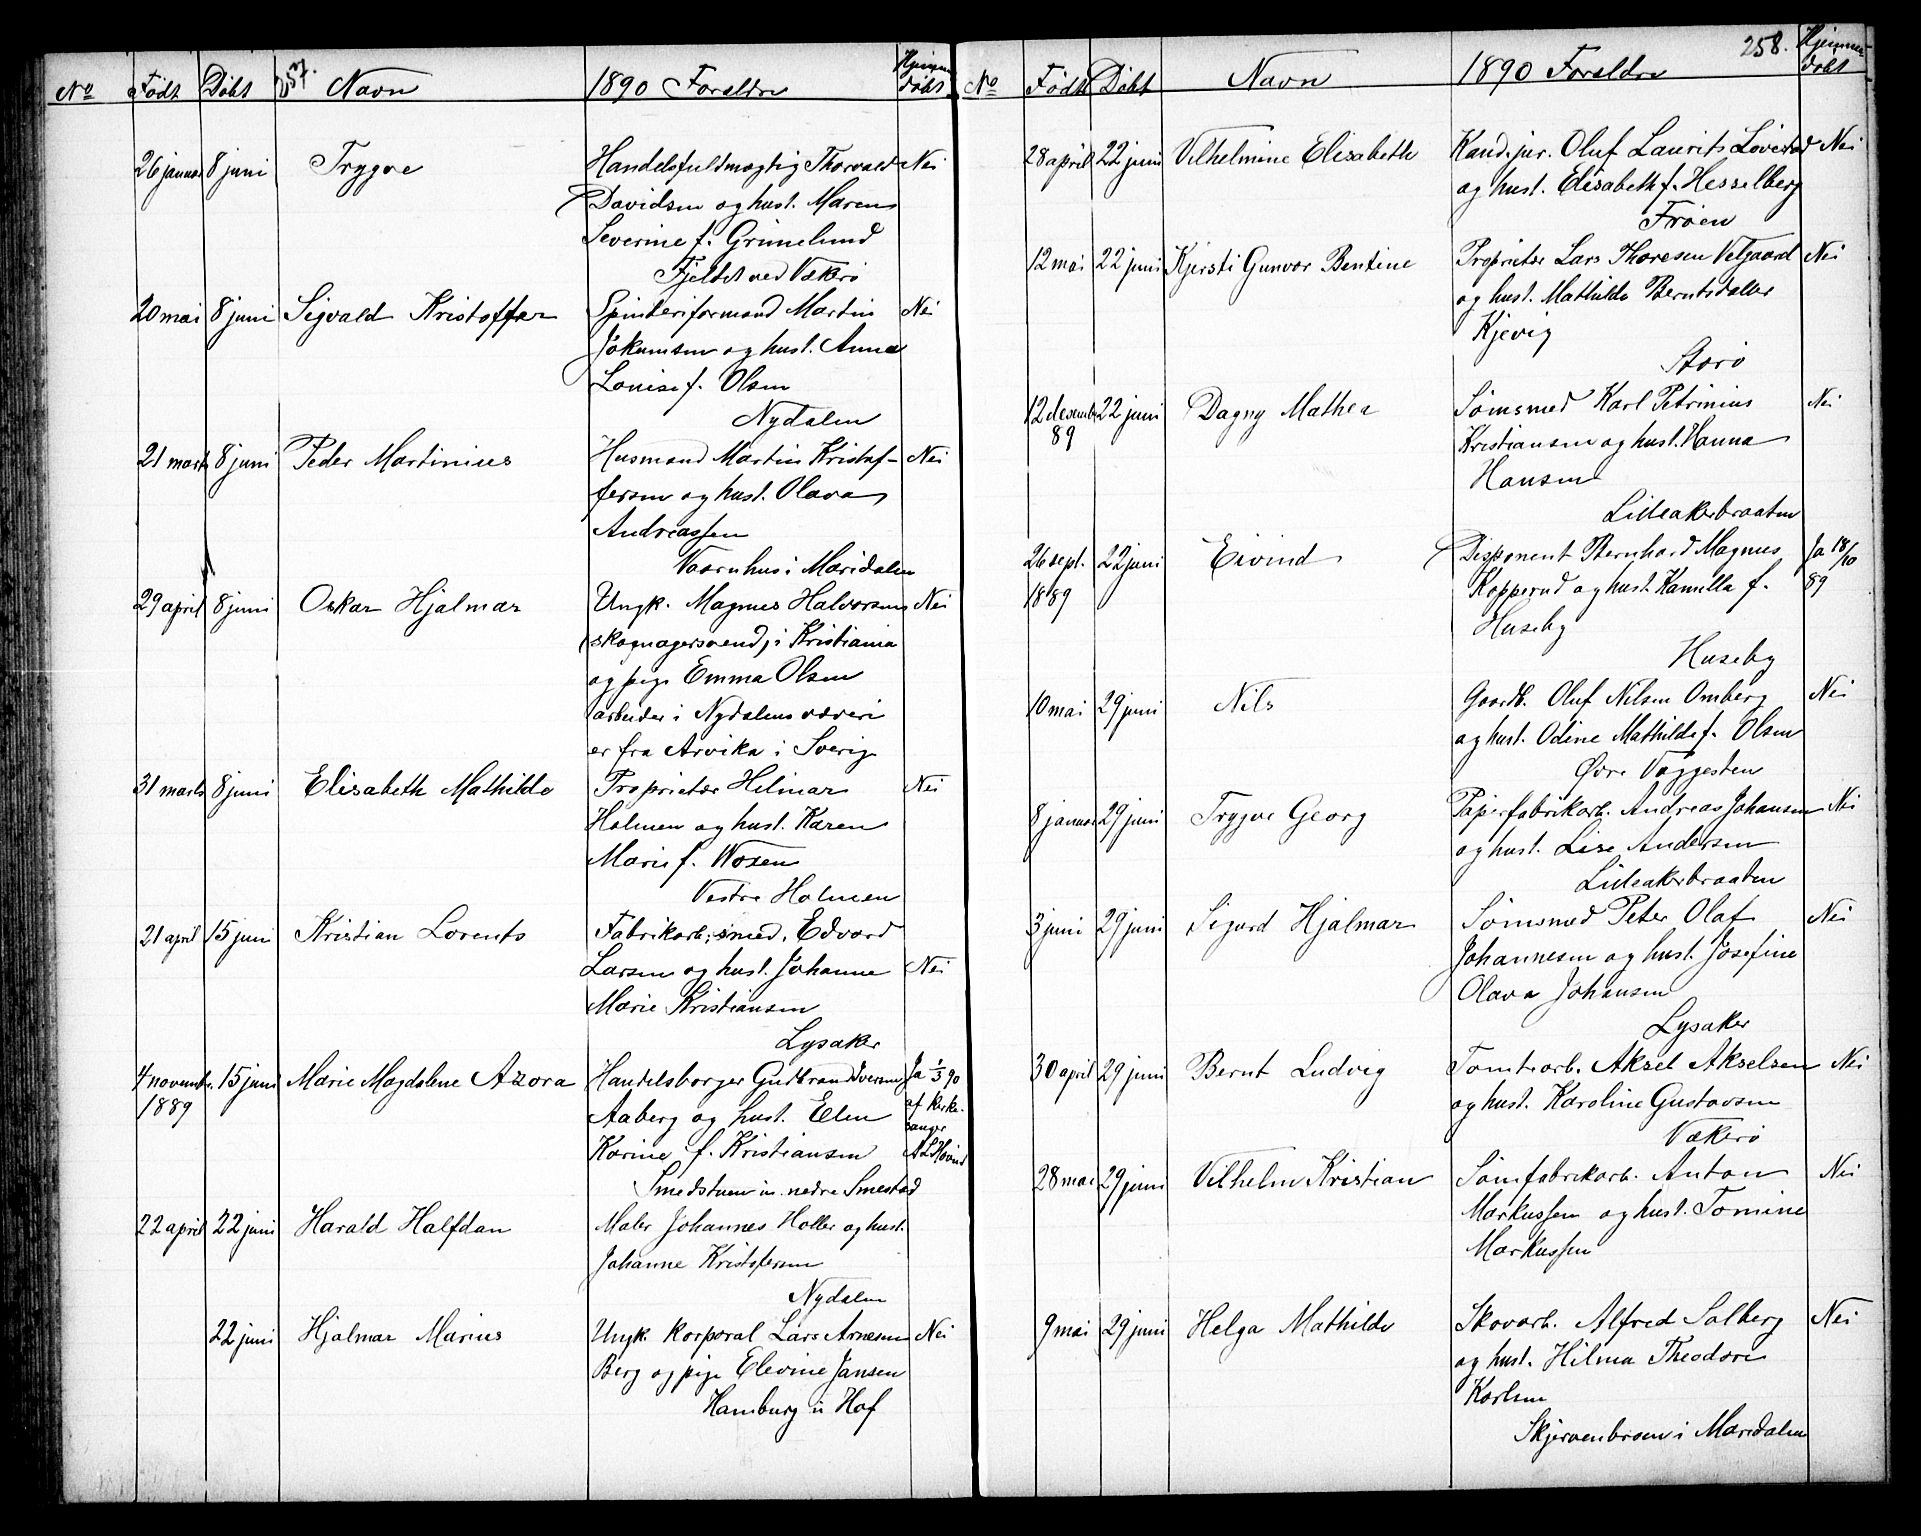 No Født Døbt 257. Navn 1890 Forældre Hjemmedøbt
26 januar 8 juni Trygve Handelsfuldmægtig Thorvald Nei
Davidsen og hust. Maren
Severine f. Grimelund
Fjeldet ved Vækerø
20 mai 8 juni Sigvald Kristoffer Spinderiformand Martin Nei
Jokumsen og hust. Anna
Louise f. Olsen
Nydalen
21 marts 8 juni Peder Martinius Husmand Martin Kristof- Nei
fersen og hust. Olava
Andreassen
Vaarnhus i Maridalen
29 april 8 juni Oskar Hjalmar Ungk. Magnus Halvorsen Nei
skomagersvend, i Kristiania
og pige Emma Olsen
arbeider i Nydalens væveri
er fra Arvika i Sverig
31 marts 8 juni Elisabeth Mathilde Proprietær Hilmar Nei
Holmen og hust. Karen
Marie f. Woxen
Vestre Holmen
21 april 15 juni Kristian Lorents Fabrikarb., smed, Edvard
Larsen og hust. Johanne Nei
Marie Kristiansen
Lysaker
4 novembr. 15 juni Marie Magdalene Azora Handelsborger Gudbrand Iversen Ja 1/3 90
1889 Aaberg og hust. Elen af kirke-
sanger
Karine f. Kristiansen A L Høvind
Smedstuen u. nedre Smestad
22 april 22 juni Harald Halfdan Maler Johannes Holler og hust.
Johanne Kristofersen
Nydalen
22 juni Hjalmar Marius Ungk. korporal Lars Arnesen Nei
Berg og pige Elevine Jansen
Hamburg u. Hof
No Født Døbt Navn 1890 Forældre 258. Hjemmedøbt
28 april 22 juni Vilhelmine Elisabeth Kand. jur. Oluf Laurits Løvestad Nei
og hust. Elisabeth f. Hesselberg
Frøen
12 mai 22 juni Kjersti Gunvor Bentine Proprietær Lars Thoresen Vetgaard Nei
og hust. Mathilde Berntsdatter
Kjevig
Storø
12 desember 22 juni Dagny Mathea Sømsmed Karl Petrinius Nei
89 Kristiansen og hust. Hanna
Hansen
Lilleakerbraaten
26 sept. 22 juni Eivind Disponent Bernhard Magnus Ja 18/10
1889 Kopperud og hust. Kamilla f. 89
Huseby
Huseby
10 mai 29 juni Nils Gaardb. Oluf Nilsen Omberg Nei
og hust. Odine Mathilde f. Olsen
Øvre Vaggesten
8 januar 29 juni Trygve Georg Papirfabrikarb. Andreas Johansen Nei
og hust. Lise Andersen
Lilleakerbraaten
3 juni 29 juni Sigurd Hjalmar Sømsmed Peter Olaf Nei
Johannesen og hust. Josefine
Olava Johansen
Lysaker
30 april 29 juni Bernt Ludvig Tomtearb. Aksel Akselsen Nei
og hust. Karoline Gustavsen
Vækerø
28 mai 29 juni Vilhelm Kristian Sømfabrikarb. Anton Nei
Markussen og hust. Tomine
Markussen
9 mai 29 juni Helga Mathilde Skovarb. Alfred Solberg Nei
og hust. Hilma Theodora
Karlsen
Skjervenbroen i Maridalen